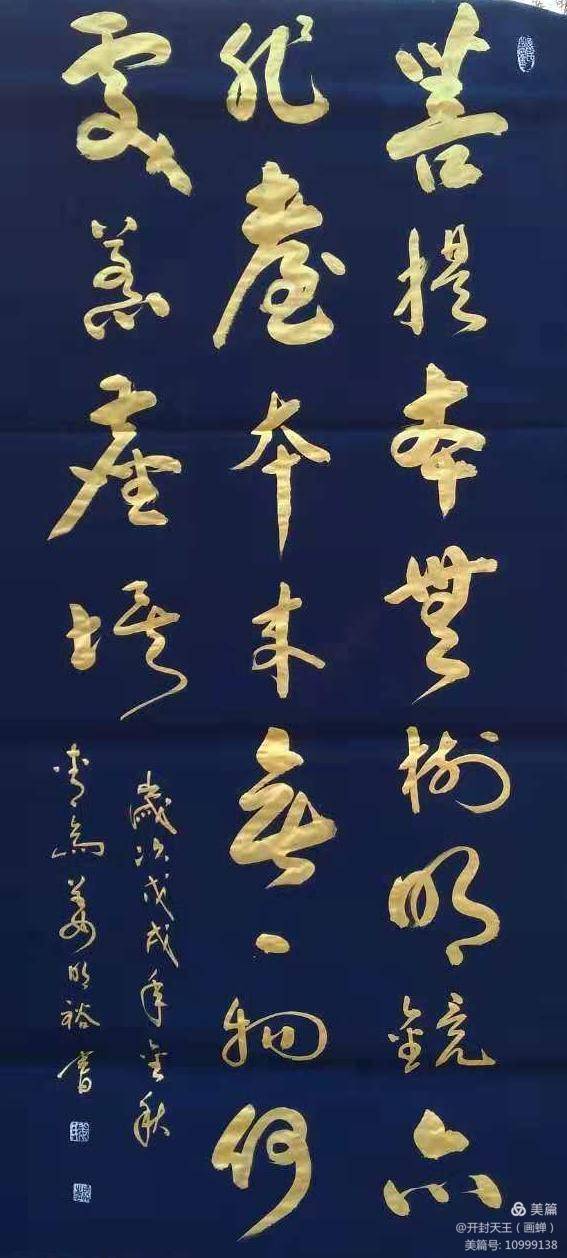 菩提本無樹明鏡亦
非臺本來無一物何
處惹塵埃
歲次戊戌年金秋
青島姜明裕書
美篇
@开封天王（画蝉）
美篇号: 10999138